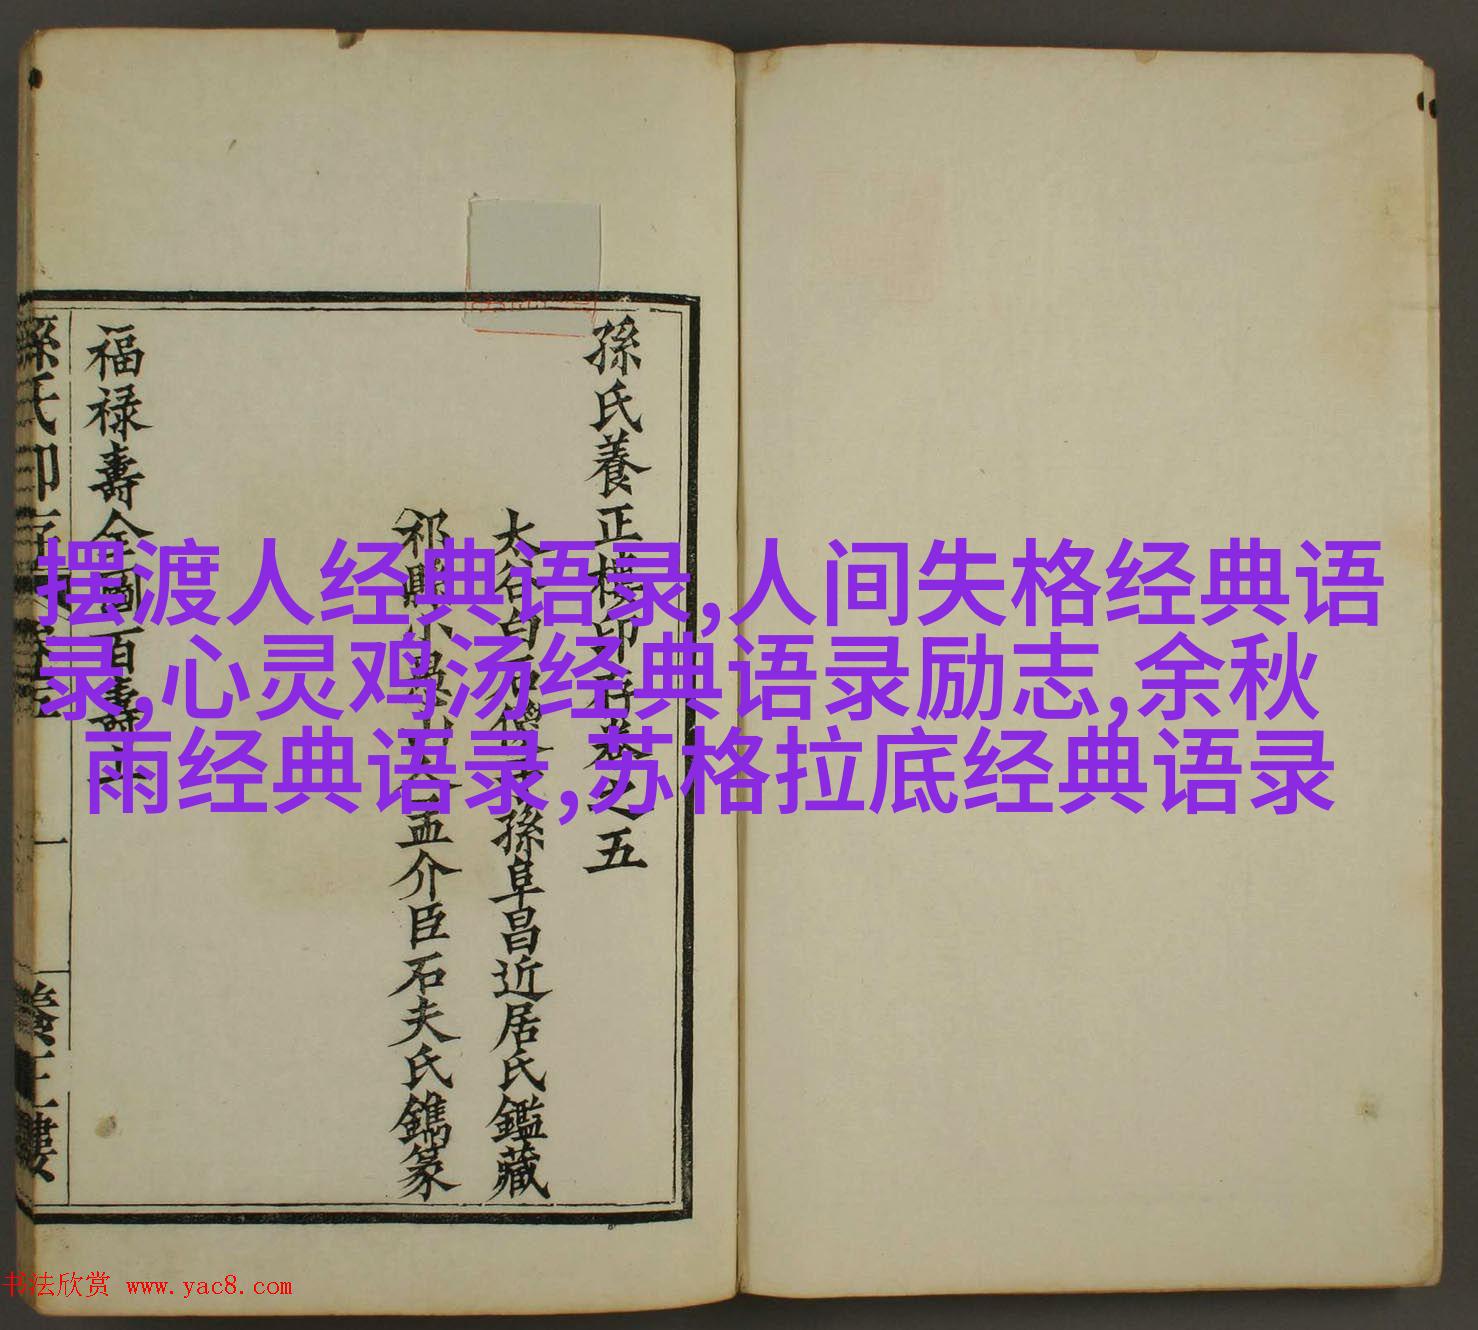 孫氏養正樓印存卷之五
太谷白石僊孫阜昌近居氏鑑藏
祁縣小
孟介臣石夫氏鐫篆
福禄壽全圖百壽
摆渡人经典语录,人间失格经典语
录,心灵鸡汤经典语录励志,余秋
雨经典语录,苏格拉底经典语录
书法欣赏 www.yac8.com